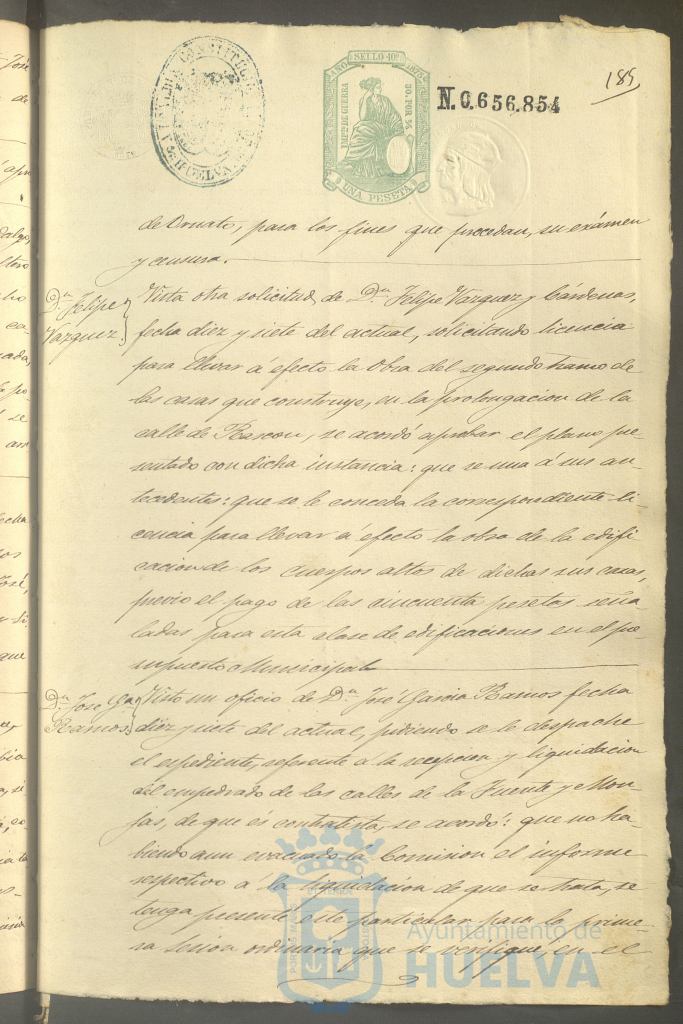 ALCALDIA CONSTITUCIONAL
DE HUELVA
AÑO SELLO 10º 1875
IMPTO DE GUERRA
50. POR %
UNA PESETA
N.0.656.854
185
de Ornato, para los fines que procedan, su exámen
y censura.
Dn. Felipe
Vazquez.
Vista otra solicitud de Dn. Felipe Vazquez y Cárdenas,
fecha diez y siete del actual, solicitando licencia
para llevar á efecto la obra del segundo tramo de
las casas que construye, en la prolongacion de la
calle de Rascon, se acordó aprobar el plano pre-
sentado con dicha instancia: que se una á sus an-
tecedentes: que se le conceda la correspondiente li-
cencia para llevar á efecto la obra de la edifi-
cacion de los cuerpos altos de dichas sus casas,
previo el pago de las cincuenta pesetas seña-
ladas para esta clase de edificaciones en el pre-
supuesto Municipal.
Dn. José Ga.
Ramos.
Visto un oficio de Dn. José Garcia Ramos fecha
diez y siete del actual, pidiendo se le despache
el espediente, referente á la recepcion y liquidacion
del empedrado de las calles de la Fuente y Mon-
jas, de que és contratista, se acordó: que no ha-
biendo aun evacuado la Comision el informe
respectivo á la liquidacion de que se trata, se
tenga presente este particular para la prime-
ra sesion ordinaria que se verifique, en el
Ayuntamiento de
HUELVA